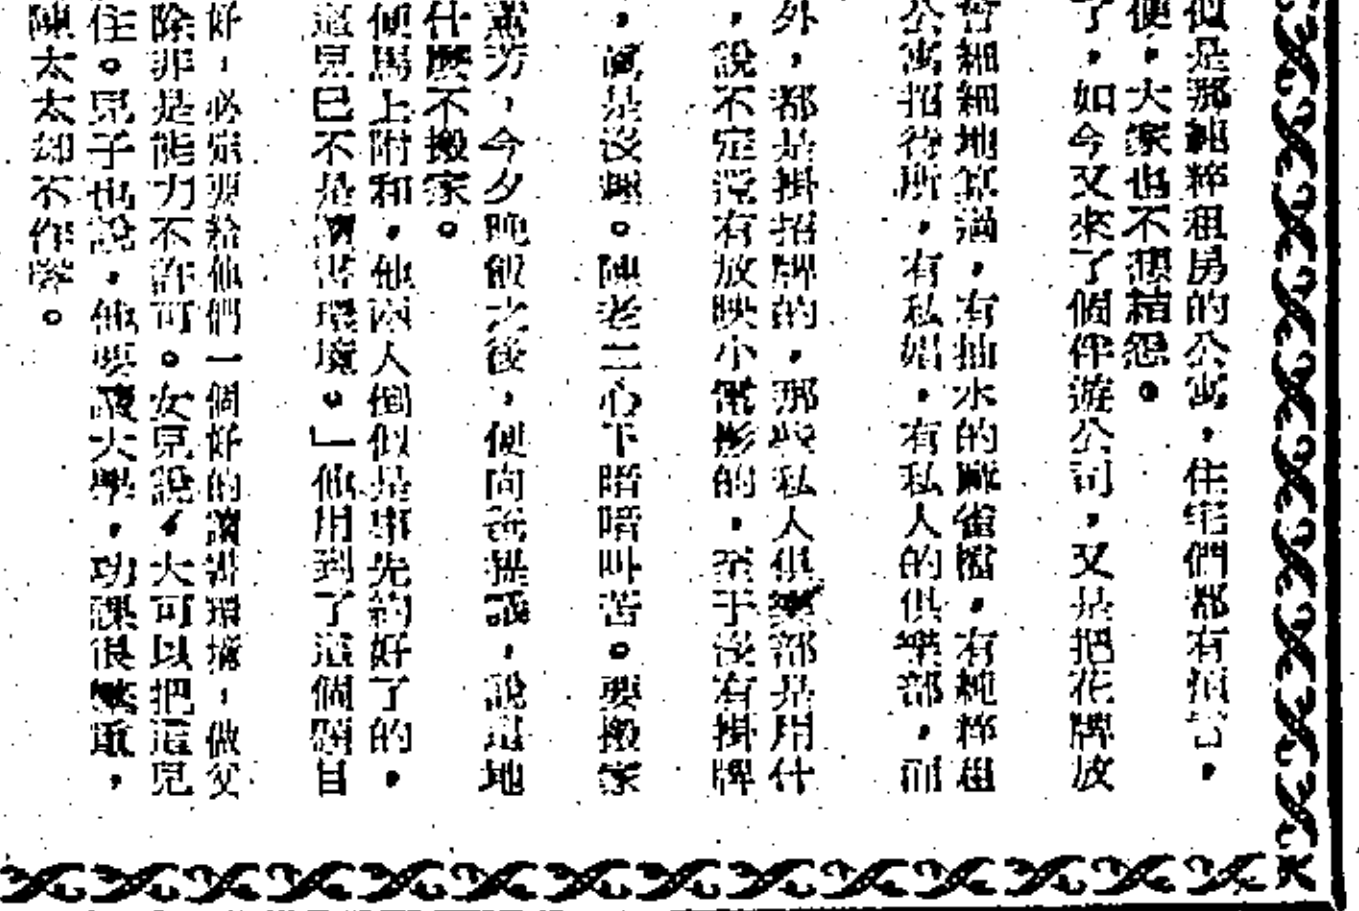 似是那純粹租房的公寓，住宅們都有煩言，
便，大家也不想結怨。
了，如今又來了個伴遊公司，又是把花牌放
曾細細地算過，有抽水的麻雀檔，有純粹租
公寓招待所，有私娼，有私人的俱樂部，而
外，都是掛招牌的，那些私人俱樂部是用什
，說不定還有放映小電影的，至于沒有掛牌
，眞是沒趣。陳老二心下暗暗叫苦。要搬家
薰芳，今夕晚飯之後，便向爸提議，說這地
什麼不搬家。
便馬上附和，他兩人倒似是事先約好了的，
這兒已不是讀書環境。」他用到了這個題目
好，必須要給他們一個好的讀書環境，做父
除非是能力不許可。女兒說，大可以把這兒
住。兒子也說，他要讀大學，功課很繁重，
陳太太却不作聲。